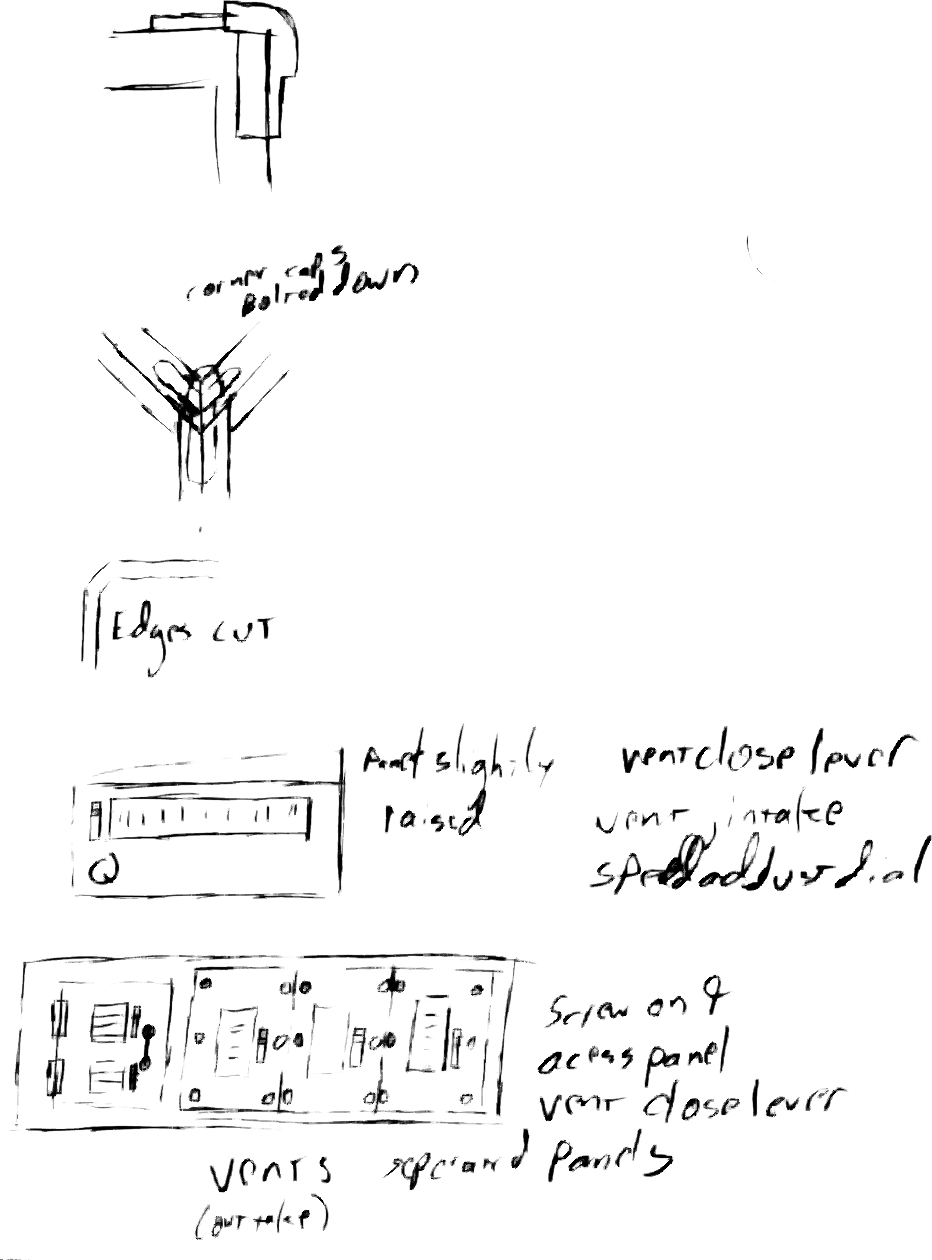 corner caps
Bolted down
Edges cut
Panel slightly
raised
vent close lever
vent intake
speed adjust dial
Screw on &
acess panel
vent close lever
vents seperated Panels
(out take)